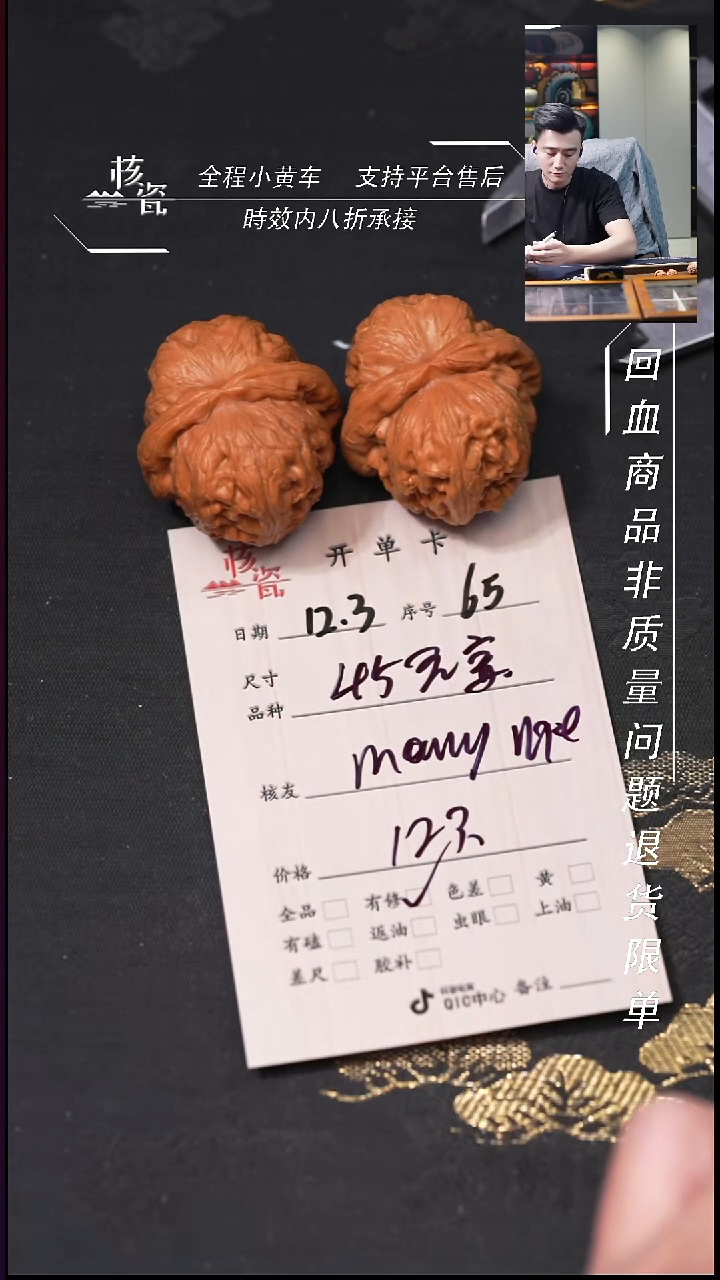 核瓷
全程小黄车 支持平台售后
時效内八折承接
回血商品非质量问题退货限单
核瓷
开单卡
日期 12.3 序号 65
尺寸 45
品种
核友
价格 12
全品 有修 色差 黄
有磕 返油 虫眼 上油
差尺 胶补
QIC中心 备注